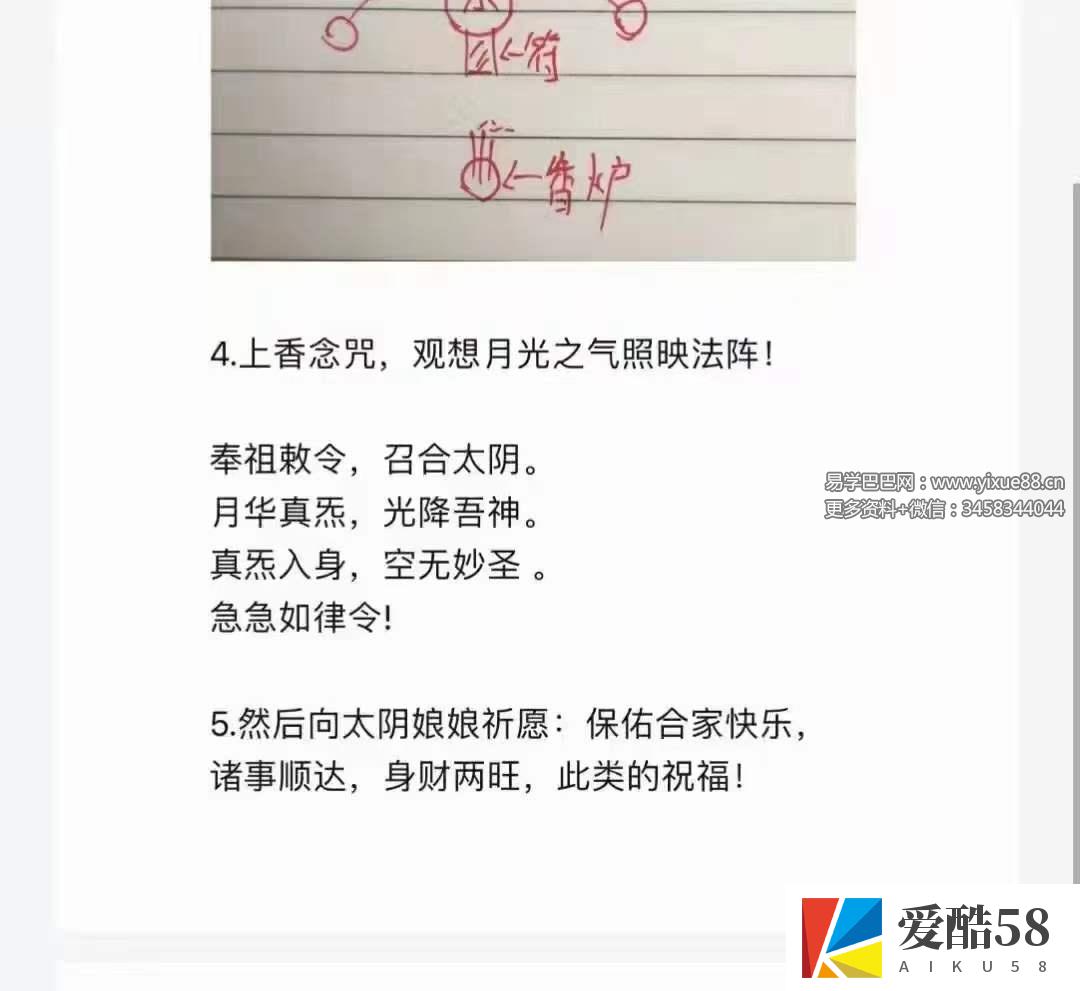 ←符
←香炉
4.上香念咒，观想月光之气照映法阵！
奉祖敕令，召合太阴。
月华真炁，光降吾神。
真炁入身，空无妙圣 。
急急如律令!
5.然后向太阴娘娘祈愿：保佑合家快乐，
诸事顺达，身财两旺，此类的祝福！
易学巴巴网：www.yixue88.cn
更多资料+微信：3458344044
爱酷58
AIKU58